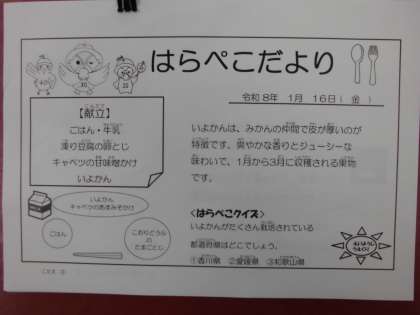 はらぺこだより
令和8年 1月 16日(金)
【献立】
ごはん・牛乳
凍り豆腐の卵とじ
キャベツの甘味噌かけ
いよかん
いよかんは、みかんの仲間で皮が厚いのが
特徴です。爽やかな香りとジューシーな
味わいで、1月から3月に収穫される果物
です。
いよかん
キャベツのあまみそかけ
ごはん
こおりどうふ
の
たまごとじ
<はらぺこクイズ>
いよかんがたくさん栽培されている
都道府県はどこでしょう。
①香川県 ②愛媛県 ③和歌山県